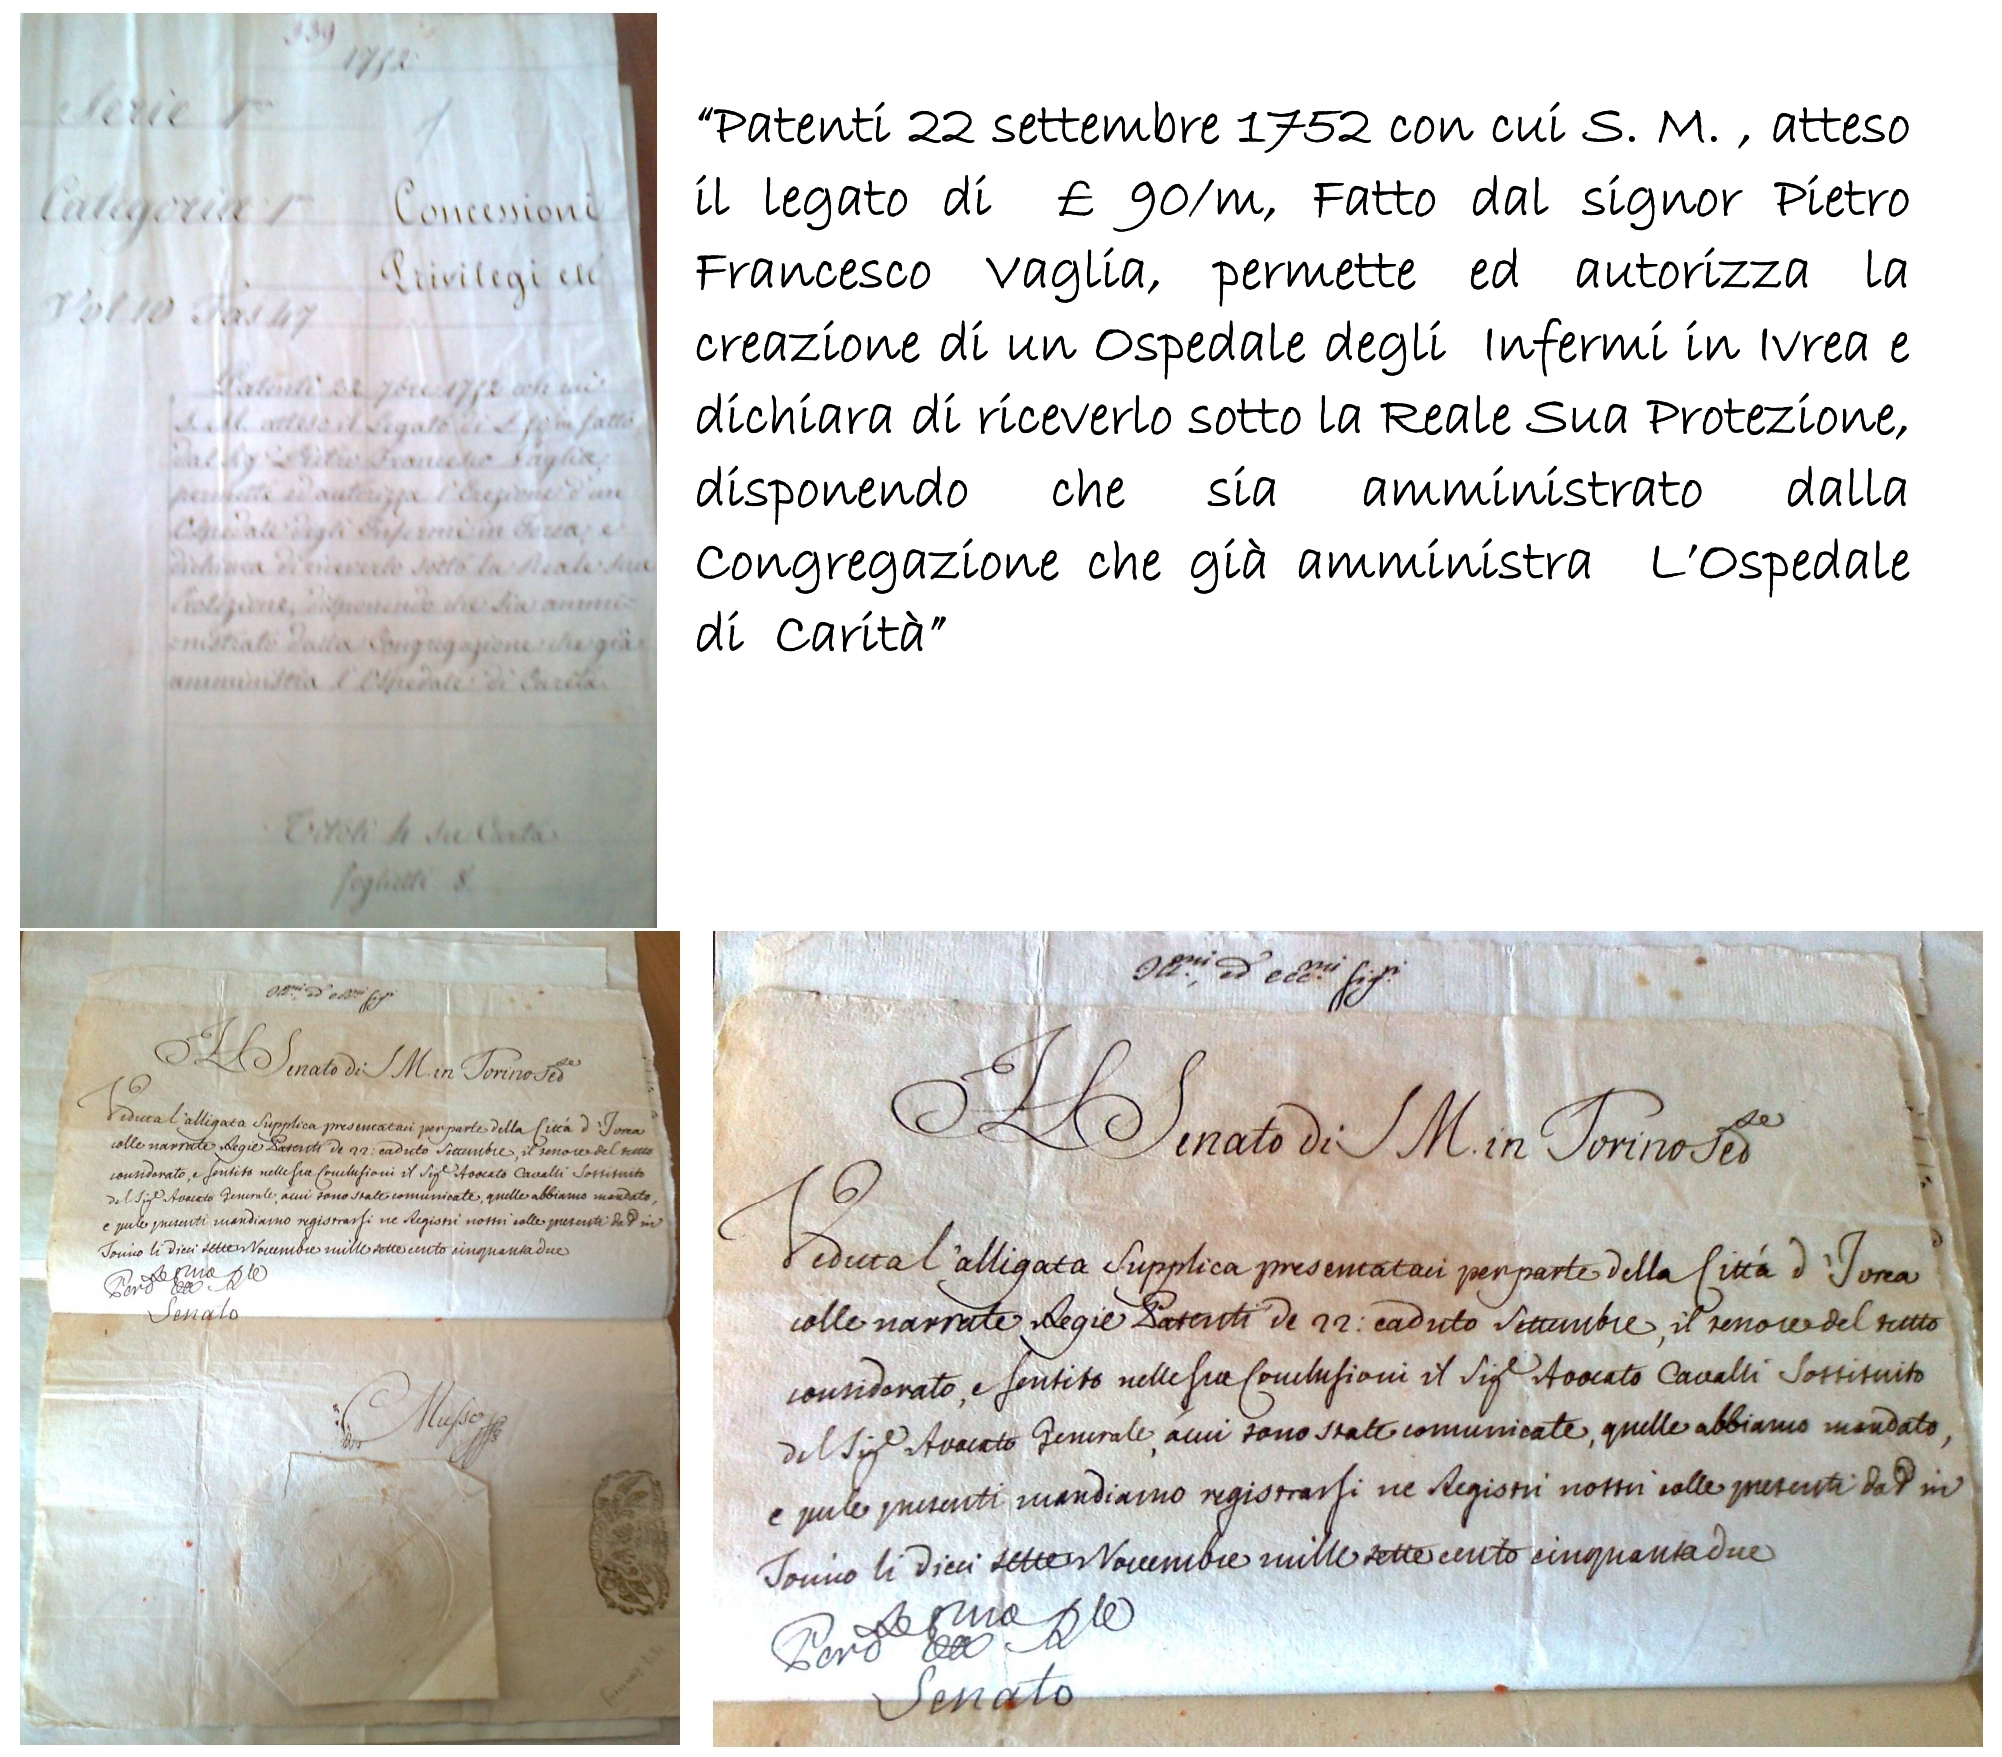 339
1752
Serie 1a
1
Categoria 1a Concessioni
Privilegi ecc
Vol 10 Fas 47
Patenti 22 7bre 1752 con cui
S. M. atteso il Legato di £ 90/m fatto
dal Sigr Pietro Francesco Vaglia,
permette ed autorizza l'Erezione d'un
Ospedale degli Infermi in Ivrea, e
dichiara di riceverlo sotto la Reale sua
Protezione, disponendo che sia ammi-
nistrato dalla Congregazione che già
amministra l'Ospedale di Carità
Titoli 4 su Carta
foglietti 8
“Patenti 22 settembre 1752 con cui S. M. , atteso
il legato di £ 90/m, Fatto dal signor Pietro
Francesco Vaglia, permette ed autorizza la
creazione di un Ospedale degli Infermi in Ivrea e
dichiara di riceverlo sotto la Reale Sua Protezione,
disponendo che sia amministrato dalla
Congregazione che già amministra L’Ospedale
di Carità”
Ill.mi, ed ecc.mi sig.ri
IL Senato di S M. in Torino Sed.te
Veduta l'alligata Supplica presentataci per parte della Città d'Ivrea
colle narrate Regie Patenti de 22: caduto Settembre, il tenore del tutto
considerato, e sentito nelle sue Conclusioni il Sigr Avocato Cavalli Sostituito
del Sigr Avocato Generale, à cui sono state comunicate, quelle abbiamo mandato,
e pelle presenti mandiamo registrarsi ne Registri nostri colle presenti dat in
Torino li dieci sette Novembre mille sette cento cinquanta due
Senato
Musso
Ill.mi, ed ecc.mi sig.ri
IL Senato di S M. in Torino Sed.te
Veduta l'alligata Supplica presentataci per parte della Città d'Ivrea
colle narrate Regie Patenti de 22: caduto Settembre, il tenore del tutto
considerato, e sentito nelle sue Conclusioni il Sigr Avocato Cavalli Sostituito
del Sigr Avocato Generale, à cui sono state comunicate, quelle abbiamo mandato,
e pelle presenti mandiamo registrarsi ne Registri nostri colle presenti dat in
Torino li dieci sette Novembre mille sette cento cinquanta due
Senato